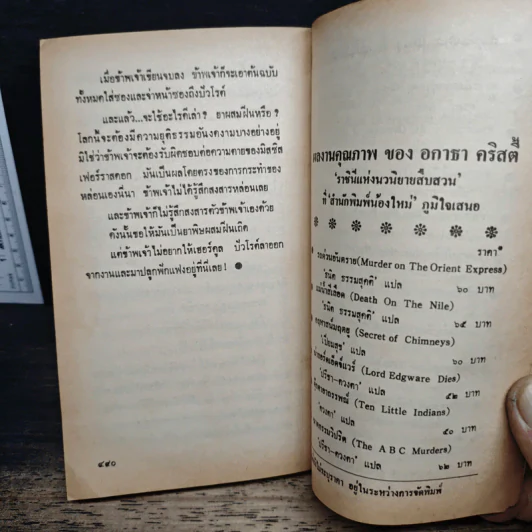 เมื่อข้าพเจ้าเขียนจบลง ข้าพเจ้าก็จะเอาต้นฉบับ
ทั้งหมดใส่ซองและจ่าหน้าซองถึงปัวโรต์
และแล้ว...จะใช้อะไรดีเล่า? ยาผสมฝิ่นหรือ?
โลกนี้จะต้องมีความยุติธรรมอันงดงามบางอย่างอยู่
มิใช่ว่าข้าพเจ้าจะต้องรับผิดชอบต่อความตายของมิสซิส
เฟอร์ราสดอก มันเป็นผลโดยตรงของการกระทำของ
หล่อนเองนี่นา ข้าพเจ้าไม่ได้รู้สึกสงสารหล่อนเลย
และข้าพเจ้าก็ไม่รู้สึกสงสารตัวข้าพเจ้าเองด้วย
ดังนั้นขอให้มันเป็นยาพิษผสมฝิ่นเถิด
แต่ข้าพเจ้าไม่อยากให้เฮอร์คูล ปัวโรต์ลาออก
จากงานและมาปลูกฟักแฟงอยู่ที่นี่เลย! ●
๔๙๐
ผลงานคุณภาพ ของ อกาธา คริสตี้
'ราชินีแห่งนวนิยายสืบสวน'
ที่ 'สำนักพิมพ์น้องใหม่' ภูมิใจเสนอ
ราคา*
รถด่วนอันตราย (Murder on The Orient Express)
'ธนิต ธรรมสุคติ' แปล ๖๐ บาท
(Death On The Nile)
'ธนิต ธรรมสุคติ' แปล ๖๕ บาท
(Secret of Chimneys)
แปล ๖๐ บาท
(Lord Edgware Dies)
'ปรีชา-ดวงตา' แปล ๕๒ บาท
(Ten Little Indians)
'ดวงตา' แปล ๕๐ บาท
(The A B C Murders)
'ปรีชา-ดวงตา' แปล ๖๒ บาท
อยู่ในระหว่างการจัดพิมพ์